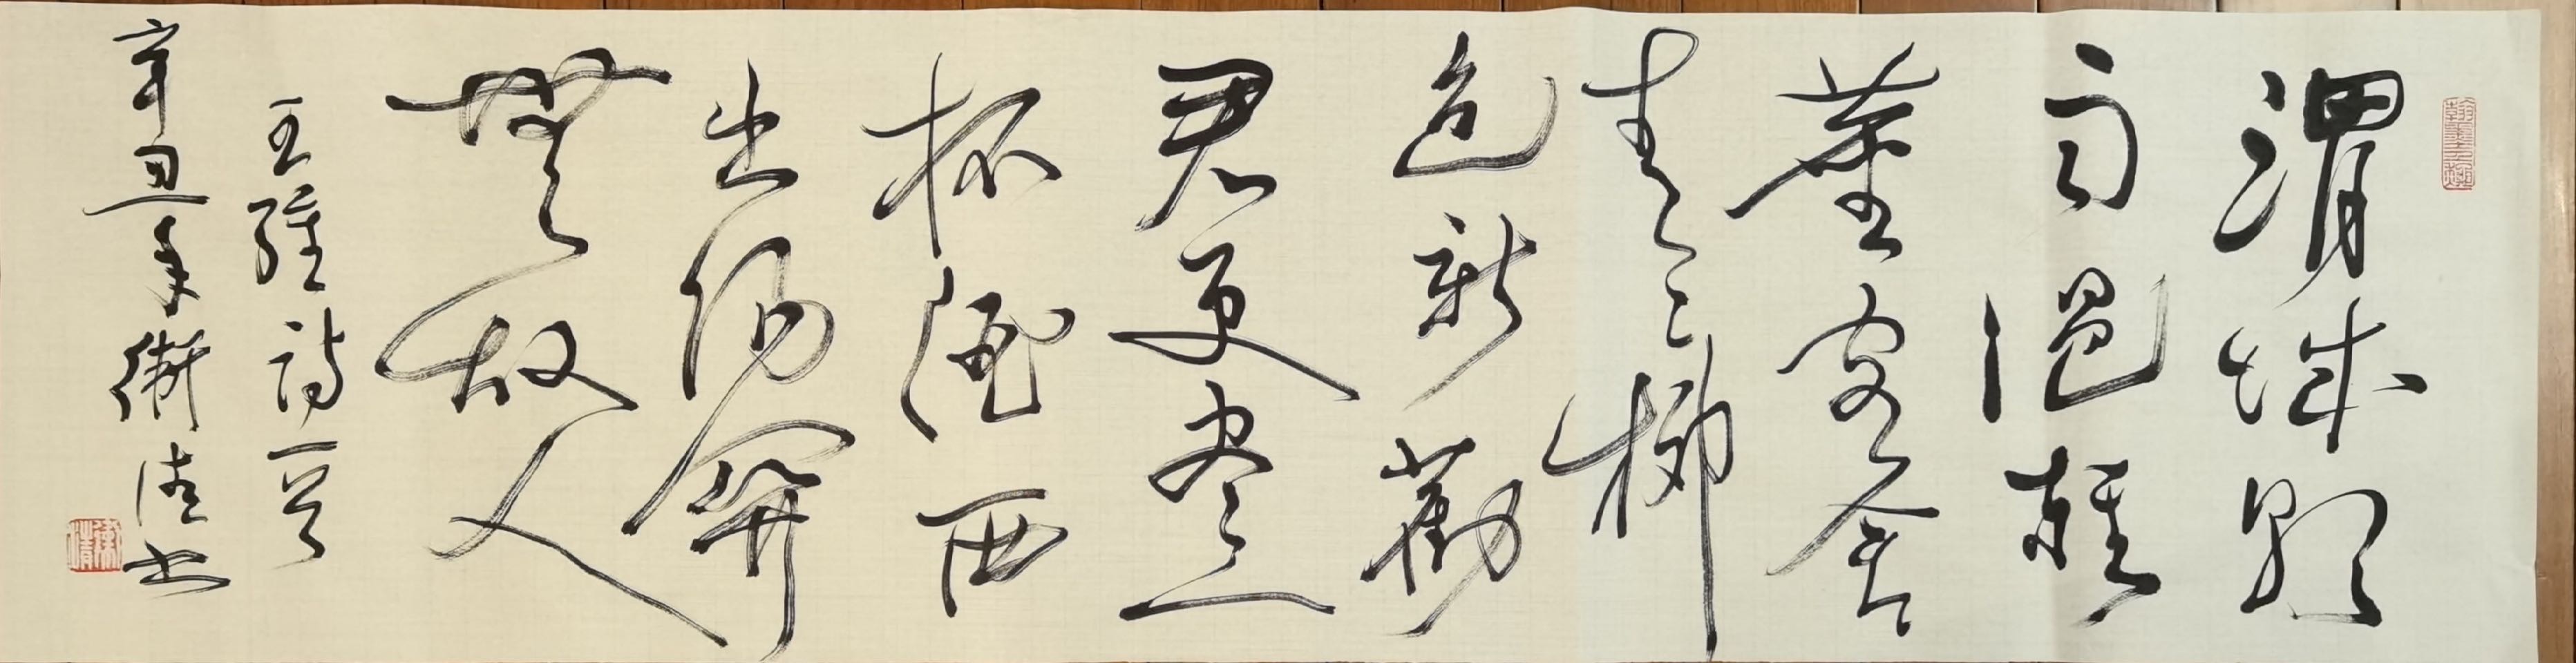 渭城朝
雨浥輕
塵客舍
青〻柳
色新勸
君更盡一
杯酒西
出陽關
無故人
王維詩一首
辛丑年衛清书
衛清